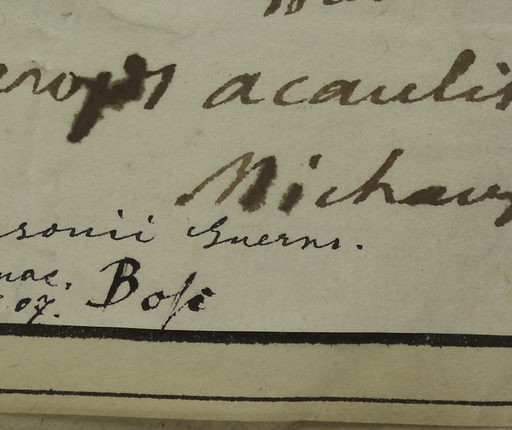 erops acaulis
Michaux
sonii Guerns.
mac. Bosc
07.